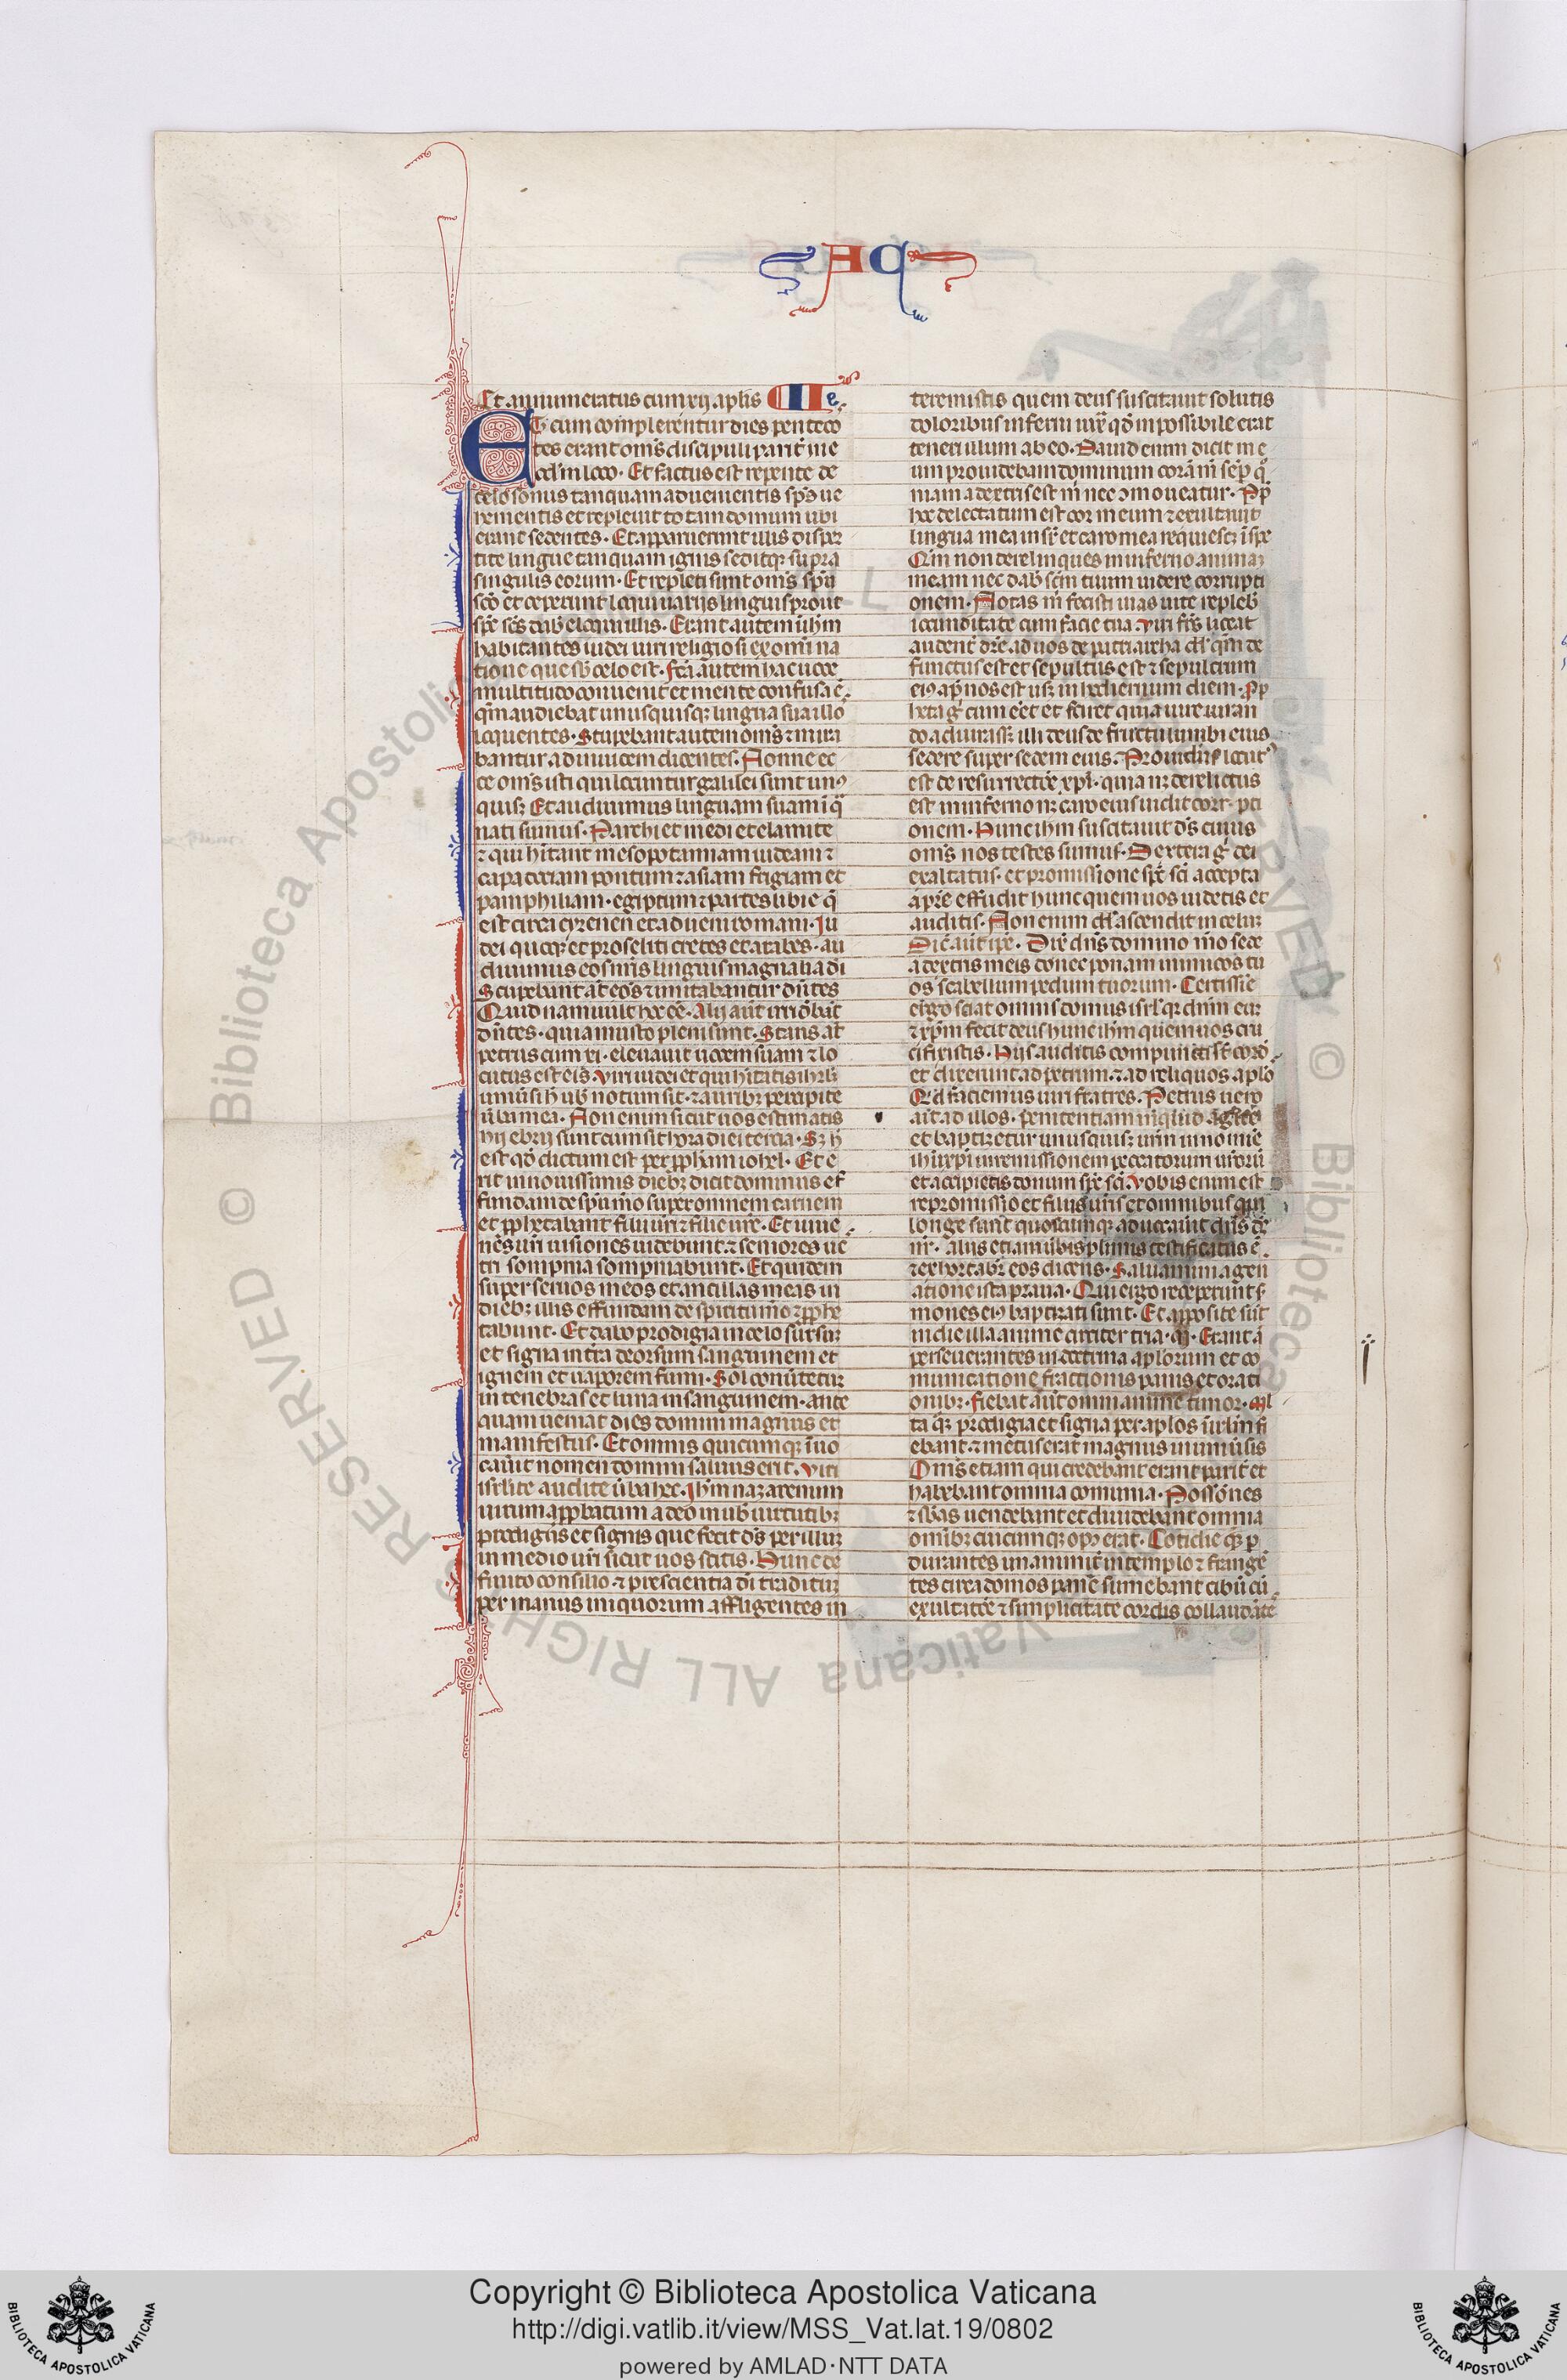 AC
Et annumeratus cum xij aplis II
ET cum complerentur dies penteco
stes erant om̅s discipuli parit̾ in e
odem loco. Et factus est repente de
celo sonus tanquam aduenientis sps̅ ue
hementis et repleuit totam domum ubi
erant sedentes. Et apparuerunt illis disper
tite lingue tanquam ignis seditqꝫ supra
singulis eorum. Et repleti sunt om̅s spū
sc̅o et ceperunt loqui uarijs linguis prout
sps̅ sc̅s dab̅ eloqui illis. Erant autem in ihr̅lm
habitantes iudei uiri religiosi ex omni na
tione que sb̅ celo est. Fc̅a autem hac uoce
multitudo conuenit et mente confusa ē.
qm̅ audiebat unusquisqꝫ lingua sua illos
loquentes. Stupebant autem om̅s ⁊ mira
bantur ad inuicem dicentes. Nonne ec
ce om̅s isti qui locuntur galilei sunt unꝰ
quisqꝫ Et audiuimus linguam suam ī qua
nati sumus. Parthi et medi et elamite
⁊ qui hītant mesopotamiam iudeam ⁊
capadociam pontum ⁊ asiam frigiam et
pamphiliam. egiptum ⁊ partes libie q̄
est circa cyrenen et aduene romani. Iu
dei quoqꝫ et proseliti cretes et arabes. au
diuimus eos nr̅is linguis magnalia di
Stupebant at̅ eos ⁊ mirabantur dn̅tes
Quid nam uult hoc ee̅. Alij aut̅ irridēbāt
dn̅tes. quia musto pleni sunt. Stans at̅
petrus cum xi. eleuauit uocem suam ⁊ lo
cutus est eis. Viri iudei et qui hītatis ihr̅lm
uniūsi h̅ uob̅ notum sit. ⁊ auribꝫ percipite
ūba mea. Non enim sicut uos estimatis
hij ebrij sunt cum sit hora diei tercia. Sꝫ h̅
est qd̅ dictum est per pp̅hām iohel. Et e
rit in nouissimis diebꝫ dicit dominus ef
fundam de spū m̅o super omnem carnem
et pp̅hetabunt filij ur̅i ⁊ filie ur̅e. Et iuue
nes ur̅i uisiones uidebunt ⁊ seniores ue
tri sompnia sompniabunt. Et quidem
super seruos meos et ancillas meas in
diebꝫ illis effundam de spiritu m̅o ⁊ pp̅he
tabunt. Et dabo prodigia in celo sursum
et signa in tr̅a deorsum sanguinem et
ignem et uaporem fumi. Sol conūtetur
in tenebras et luna in sanguinem. ante
quam ueniat dies domini magnus et
manifestus. Et omnis quicumqꝫ īuo
cauit nomen domini saluus erit. Viri
isrlite audite ūba hec. Ihm̅ nazarenum
uirum app̅batum a deo in uob̅ uirtutibꝫ
prodigijs et signis que fecit ds̅ per illum
in medio ur̅i sicut uos scitis. Hunc de
finito consilio ⁊ prescientia di̅ traditum
per manus iniquorum affligentes in
teremistis quem deus suscitauit solutis
doloribus inferni iux̅ qd̅ inpossibile erat
teneri illum ab eo. Dauid enim dicit in e
um prouidebam dominum corā m̅ semp̅ q̄
niam a dextris est m̅ nec ꝯmoueatur. Pp̅
hoc delectatum est cor meum ⁊ exultauit
lingua mea insup̅ et caro mea requiescꝫ ī spe
Qm̅ non derelinques in inferno animaꝫ
meam nec dab̅ sc̅m tuum uidere corrupti
onem. Notas m̅ fecisti uias uite repleb̅
iocunditate cum facie tua. Viri fr̅s liceat
audent̾ dr̅e ad uos de patriarcha dd̅ qm̅ de
functus est et sepultus est ⁊ sepulcrum
eiꝰ apd̅ nos est usqꝫ in hodiernum diem. Pp̅
heta gͥ cum eēt et sciret quia iureiuran
do adiurass; illi deus de fructu lumbi eius
sedere super sedem eius. Prouidens locutꝰ
est de resurrectōe xp̅i. quia nqꝫ derelictus
est in inferno nqꝫ caro eius uidit corrupti
onem. Hunc ihm̅ suscitauit ds̅ cuius
om̅s nos testes sumus. Dextera gͥ dei
exaltatus. et promissione sps̅ sc̅i accepta
a pr̅e effudit hunc quem uos uidetis et
auditis. Non enim dd̅ ascendit in celum
Dic̅ aut̅ ip̅e. Dix̅ dn̅s domino m̅o sede
a dextris meis donec ponam inimicos tu
os scabellum pedum tuorum. Certissie̅
ergo sciat omnis domus isrl̅ qꝫ dnm̅ eum
⁊ xpm̅ fecit deus hunc ihm̅ quem uos cru
cifixistis. Hijs auditis compuncti st̅ cord̅
et dixerunt ad petrum ⁊ ad reliquos aplo̅
Qd̅ faciemus uiri fratres. Petrus uero
ait ad illos. penitentiam inquid agite
et baptizetur unusquisqꝫ ur̅m in no̅mie
ihu̅ xp̅i in remissionem peccatorum ur̅orū
et accipietis donum sps̅ sc̅i. Vobis enim est
repromissio et filijs ur̅is et omnibus qui
longe sunt quoscumqꝫ aduocauit dn̅s ds̅
nr̅. Alijs etiam ūbis plurimis testificatus ē.
⁊ exhortabr̅ eos dicens. Saluamini a gen
atione ista praua. Qui ergo receperunt s̅
mones eiꝰ baptizati sunt. Et apposite sūt
in die illa anime circiter tria. Erant a̅
perseuerantes in doctrina aplorum et co
municatione fractionis panis et orati
onibꝫ. Fiebat aut̅ omni anime timor. Ml̅
ta qꝫ prodigia et signa per aplos in ihr̅lm fi
ebant ⁊ metus erat magnus in uniūsis
Om̅s etiam qui credebant erant parit̾ et
habebant omnia comunia. Possōnes
⁊ sb̅as uendebant et diuidebant omnia
omībꝫ cuicumqꝫ opꝰ erat. Cotidie qꝫ p
durantes unanimit̾ in templo ⁊ frangē
tes circa domos panē sumebant cibū cū
exultatōe ⁊ simplicitate cordis collaudātē
Copyright © Biblioteca Apostolica Vaticana
http://digi.vatlib.it/view/MSS_Vat.lat.19/0802
powered by AMLAD·NTT DATA
BIBLIOTECA APOSTOLICA VATICANA
BIBLIOTECA APOSTOLICA VATICANA
© Biblioteca Apostolica Vaticana ALL RIGHTS RESERVED